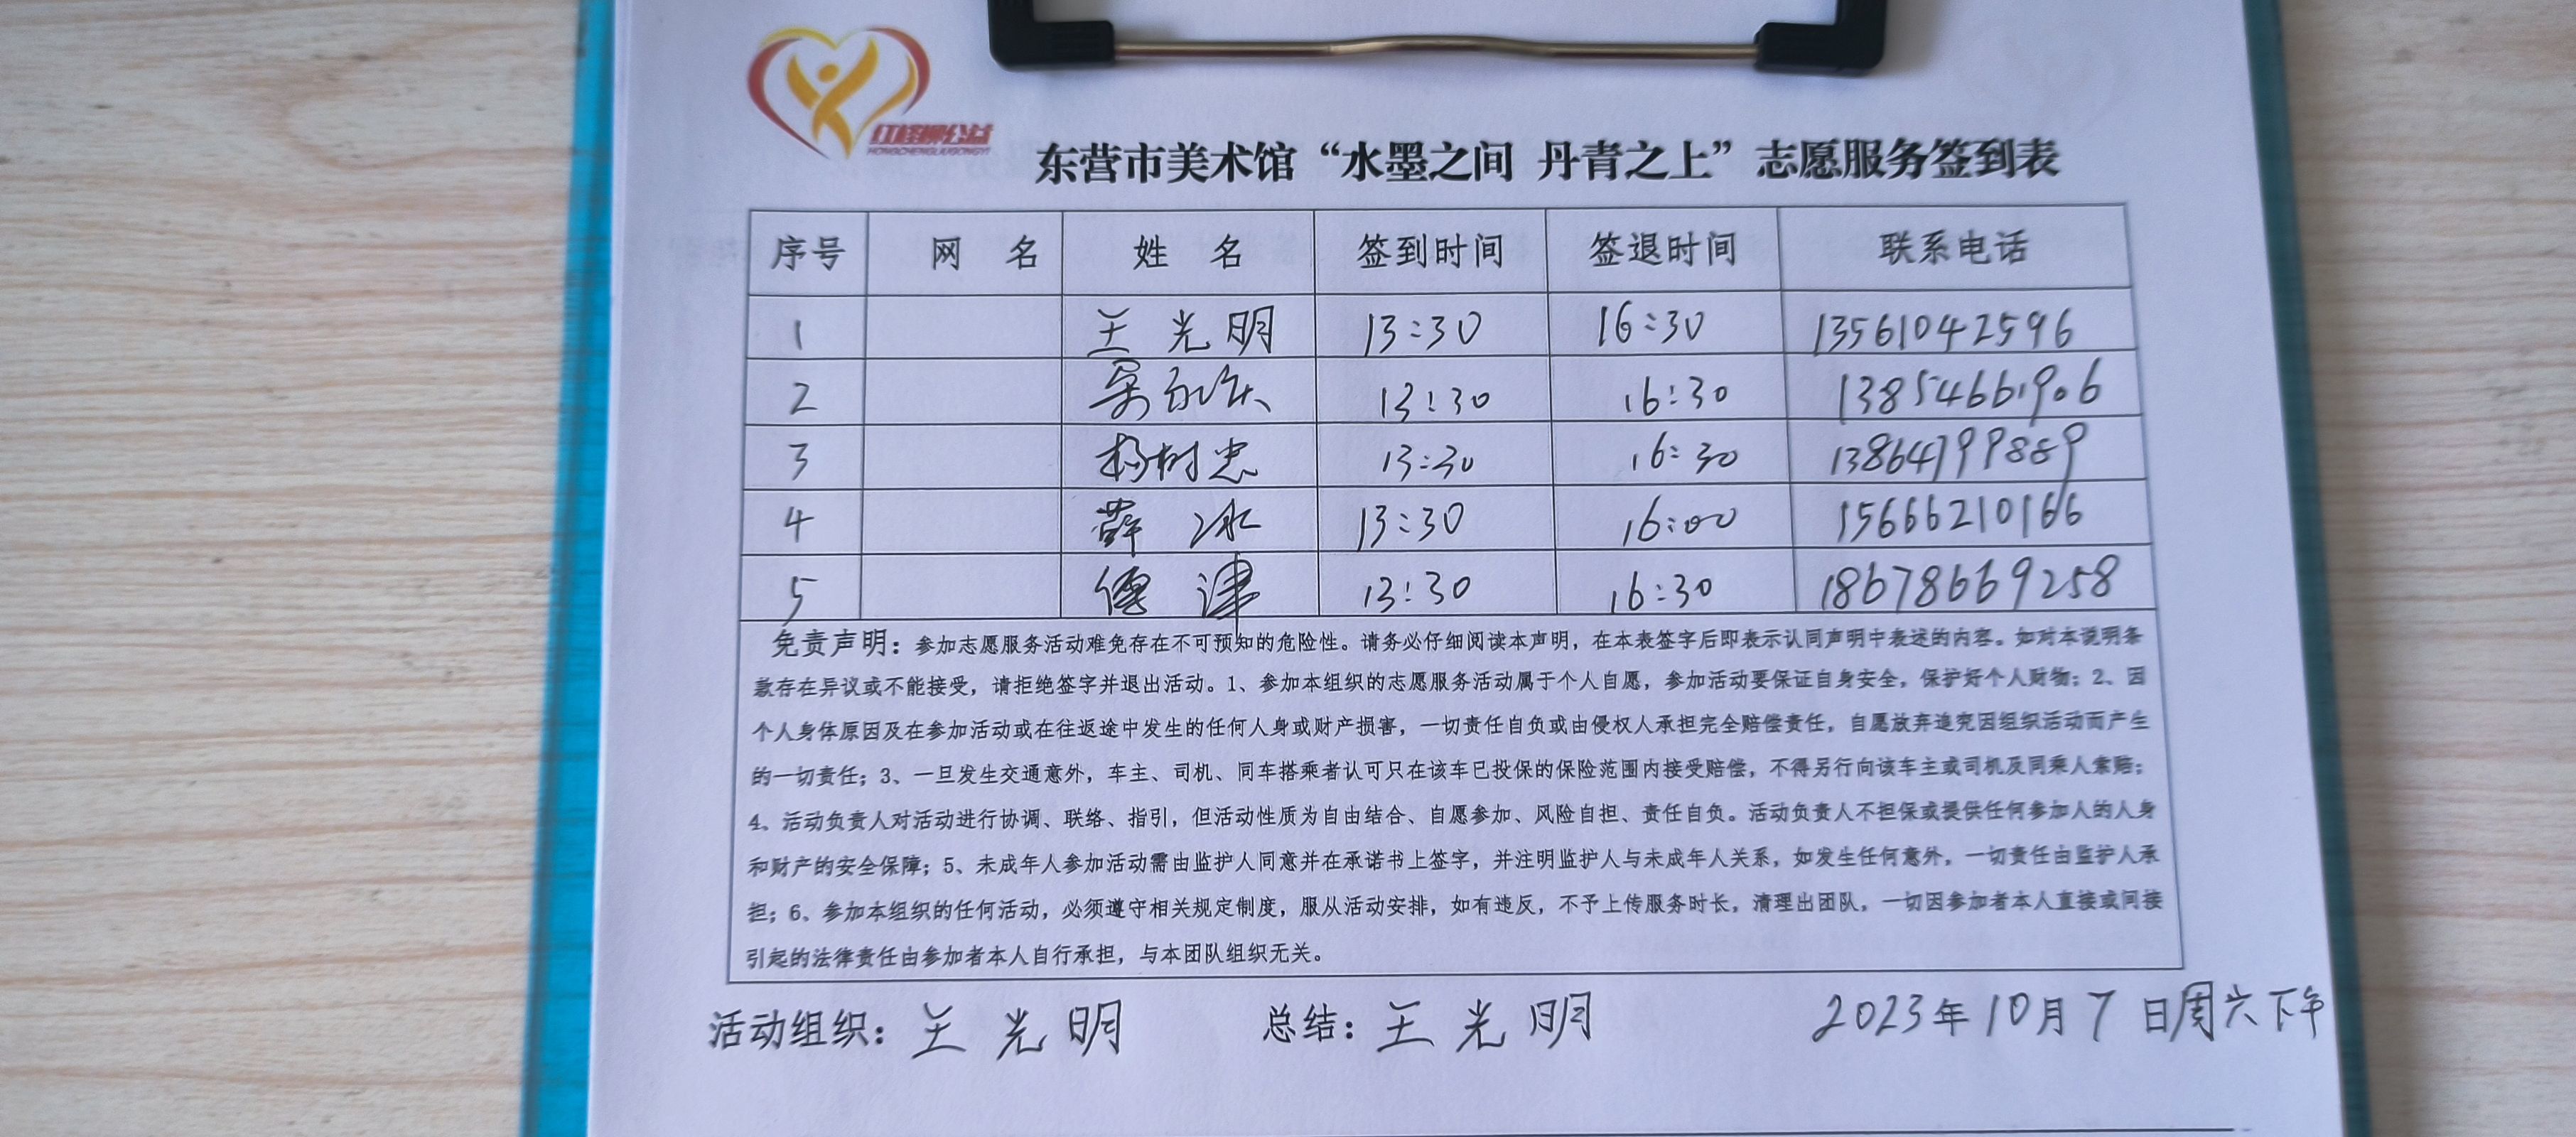 红柽柳公益
HONGCHENGLIUGONGYI
东营市美术馆“水墨之间 丹青之上”志愿服务签到表
序号 网 名 姓 名 签到时间 签退时间 联系电话
1 王光明 13:30 16:30 13561042596
2 13:30 16:30 13854661906
3 杨树忠 13:30 16:30 13864799889
4 薛冰 13:30 16:00 15666210166
5 津 13:30 16:30 18678669258
免责声明：参加志愿服务活动难免存在不可预知的危险性。请务必仔细阅读本声明，在本表签字后即表示认同声明中表述的内容。如对本说明条
款存在异议或不能接受，请拒绝签字并退出活动。1、参加本组织的志愿服务活动属于个人自愿，参加活动要保证自身安全，保护好个人财物；2、因
个人身体原因及在参加活动或在往返途中发生的任何人身或财产损害，一切责任自负或由侵权人承担完全赔偿责任，自愿放弃追究因组织活动而产生
的一切责任；3、一旦发生交通意外，车主、司机、同车搭乘者认可只在该车已投保的保险范围内接受赔偿，不得另行向该车主或司机及同乘人索赔；
4、活动负责人对活动进行协调、联络、指引，但活动性质为自由结合、自愿参加、风险自担、责任自负。活动负责人不担保或提供任何参加人的人身
和财产的安全保障；5、未成年人参加活动需由监护人同意并在承诺书上签字，并注明监护人与未成年人关系，如发生任何意外，一切责任由监护人承
担；6、参加本组织的任何活动，必须遵守相关规定制度，服从活动安排，如有违反，不予上传服务时长，清理出团队，一切因参加者本人直接或间接
引起的法律责任由参加者本人自行承担，与本团队组织无关。
活动组织：王光明 总结：王光明 2023年10月7日周六下午